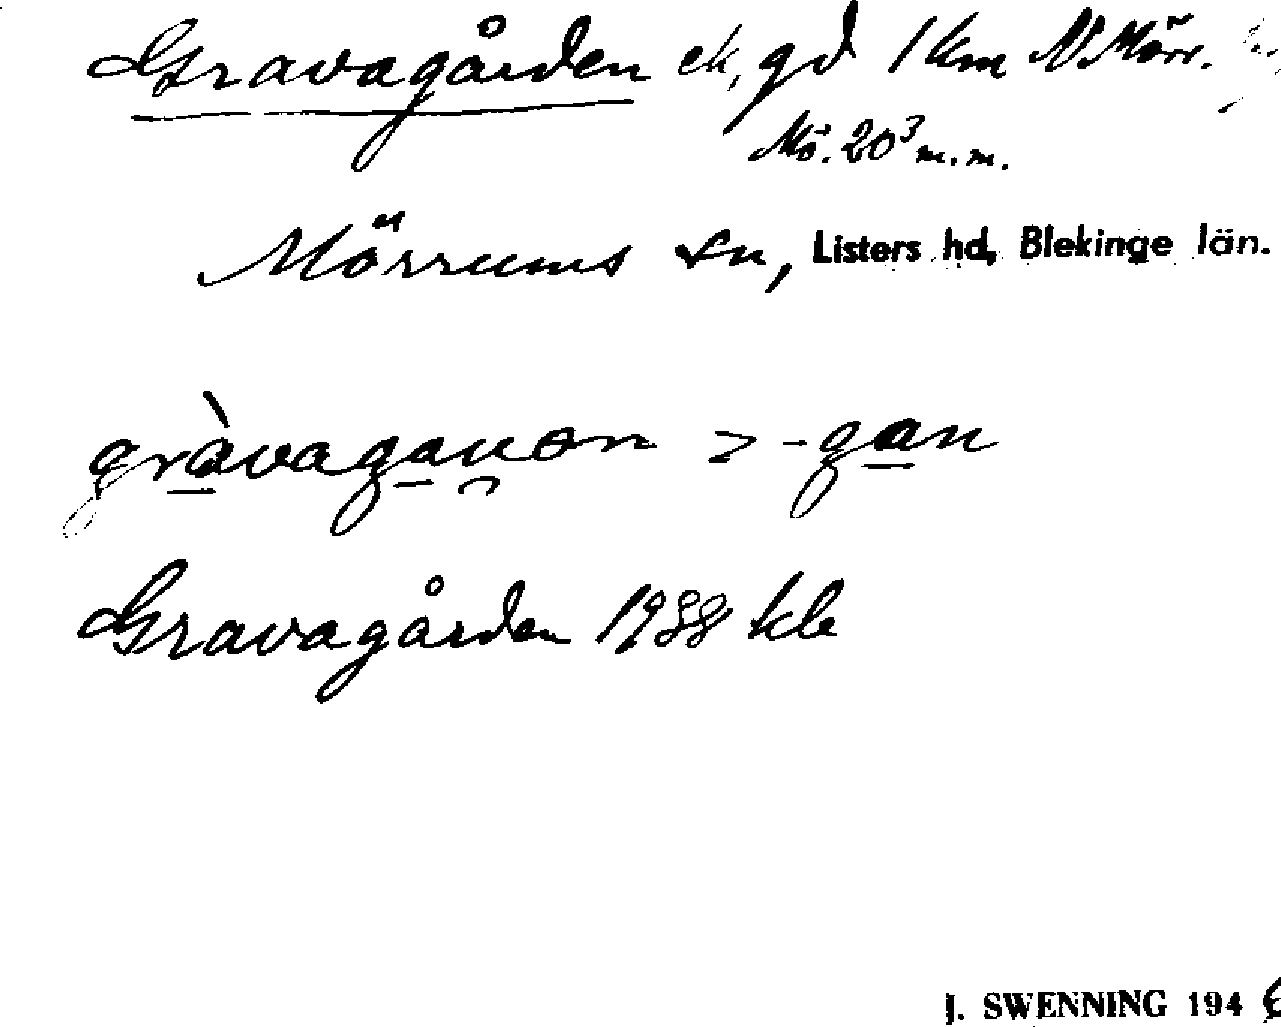 Gravagården ek, gd 1 km N Mörr.
Mö. 20³ m.m.
Mörrums sn, Listers hd, Blekinge län.
gràvagau̯ən > -gan
Gravagården 1938 kle
J. SWENNING 194